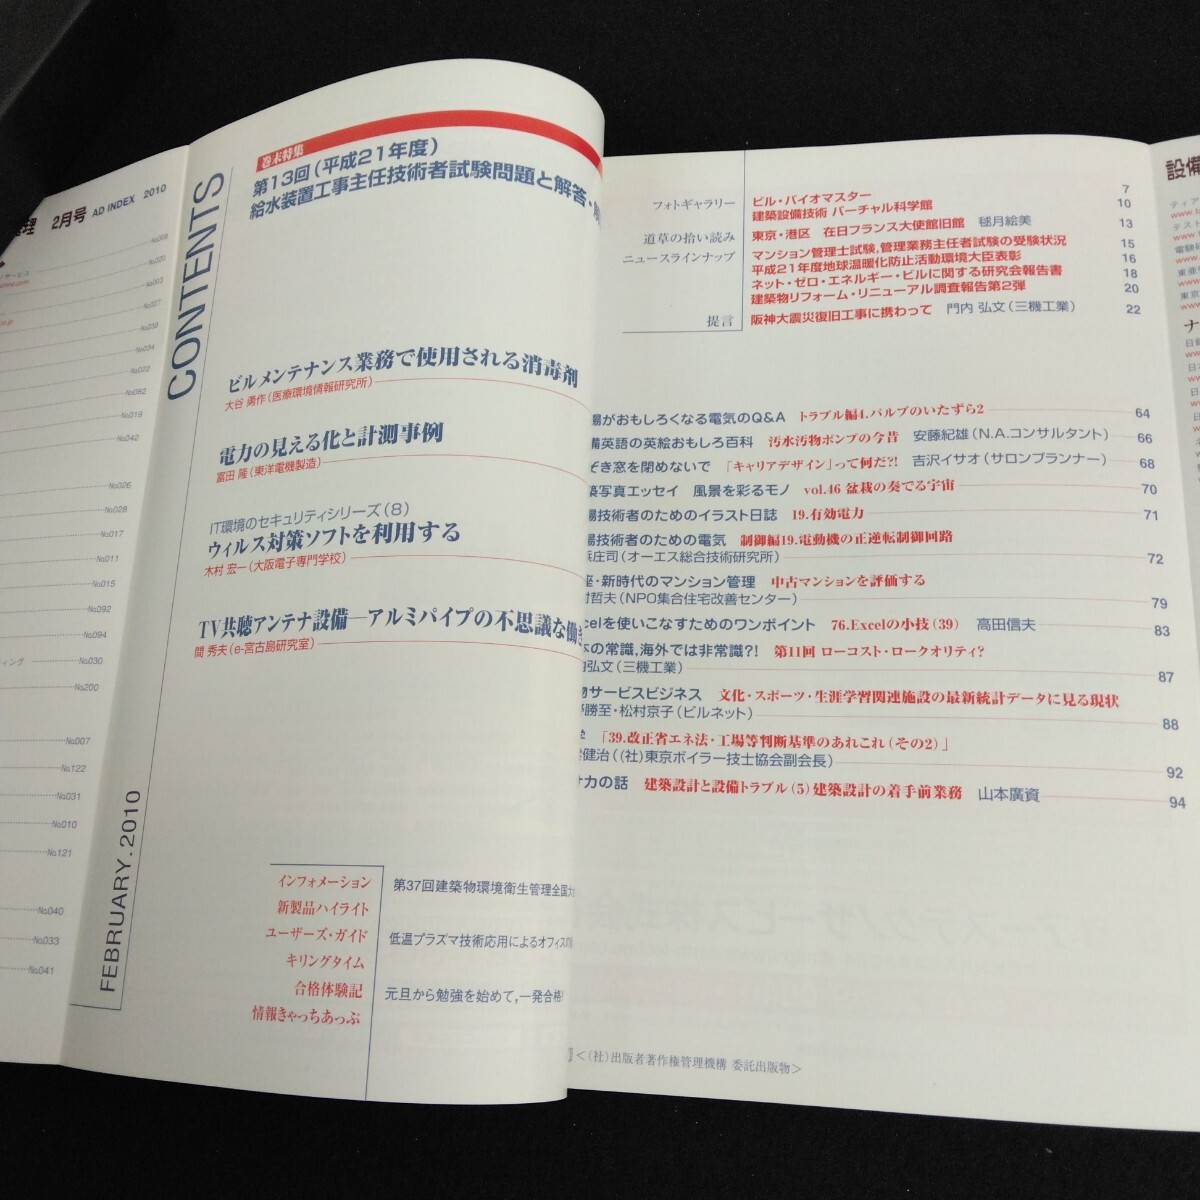 2月号 AD INDEX 2010
No.008
No.020
No.003
No.027
No.039
No.034
No.022
No.082
No.019
No.042
No.026
No.028
No.017
No.011
No.015
No.092
No.094
No.030
No.200
No.007
No.122
No.031
No.010
No.121
No.040
No.033
No.041
CONTENTS
FEBRUARY.2010
巻末特集
第13回(平成21年度)
給水装置工事主任技術者試験問題と解答・
ビルメンテナンス業務で使用される消毒剤
大谷 勇作(医療環境情報研究所)
電力の見える化と計測事例
冨田 隆(東洋電機製造)
IT環境のセキュリティシリーズ(8)
ウィルス対策ソフトを利用する
木村 宏一(大阪電子専門学校)
TV共聴アンテナ設備―アルミパイプの不思議な働き
間 秀夫(e-宮古島研究室)
インフォメーション 第37回建築物環境衛生管理全国大
新製品ハイライト
ユーザーズ・ガイド 低温プラズマ技術応用によるオフィスの
キリングタイム
合格体験記 元旦から勉強を始めて,一発合格!
情報きゃっちあっぷ
フォトギャラリー ビル・バイオマスター 7
建築設備技術 バーチャル科学館 10
道草の拾い読み 東京・港区 在日フランス大使館旧館 毬月絵美 13
ニュースラインナップ マンション管理士試験,管理業務主任者試験の受験状況 15
平成21年度地球温暖化防止活動環境大臣表彰 16
ネット・ゼロ・エネルギー・ビルに関する研究会報告書 18
建築物リフォーム・リニューアル調査報告第2弾 20
提言 阪神大震災復旧工事に携わって 門内 弘文(三機工業) 22
場がおもしろくなる電気のQ&A トラブル編4.バルブのいたずら2 64
備英語の英絵おもしろ百科 汚水汚物ポンプの今昔 安藤紀雄(N.A.コンサルタント) 66
ぞき窓を閉めないで 「キャリアデザイン」って何だ?! 吉沢イサオ(サロンプランナー) 68
築写真エッセイ 風景を彩るモノ vol.46 盆栽の奏でる宇宙 70
場技術者のためのイラスト日誌 19.有効電力 71
場技術者のための電気 制御編19.電動機の正逆転制御回路
浜庄司(オーエス総合技術研究所) 72
座・新時代のマンション管理 中古マンションを評価する
村哲夫(NPO集合住宅改善センター) 79
xcelを使いこなすためのワンポイント 76.Excelの小技(39) 高田信夫 83
本の常識,海外では非常識?! 第11回 ローコスト・ロークオリティ?
内弘文(三機工業) 87
物サービスビジネス 文化・スポーツ・生涯学習関連施設の最新統計データに見る現状
勝至・松村京子(ビルネット) 88
「39.改正省エネ法・工場等判断基準のあれこれ(その2)」
健治((社)東京ボイラー技士協会副会長) 92
ナカの話 建築設計と設備トラブル(5)建築設計の着手前業務 山本廣資 94
<(社)出版者著作権管理機構 委託出版物>
設備